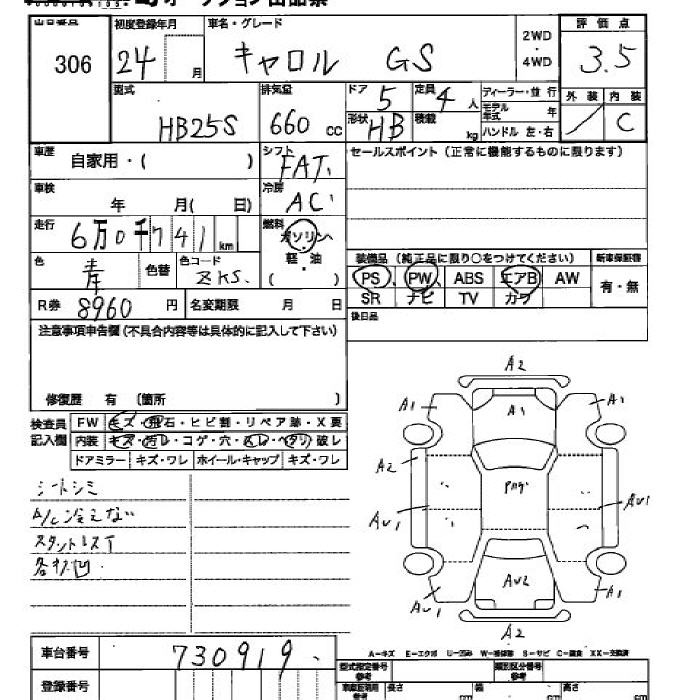 オークション出品票
出品番号 初度登録年月 車名・グレード 評価点
306 24 月 キャロル GS 2WD・4WD 3.5
型式 排気量 ドア 定員 ディーラー・並行 外装 内装
HB25S 660 cc 5 4人 モデル年式 年 / C
形状 HB 積載 kg ハンドル 左・右
車歴 自家用・( ) シフト FAT セールスポイント(正常に機能するものに限ります)
車検 年 月( 日) 冷房 AC
走行 6万0千741km 燃料 ガソリン・軽・油 ( )
色 青 色替 色コード ZKS.
装備品(純正品に限り○をつけてください) 新車保証書
PS PW ABS エアB AW 有・無
SR ナビ TV カワ
R券 8960 円 名変期限 月 日
後日品
注意事項申告欄(不具合内容等は具体的に記入して下さい)
修復歴 有 〔箇所
検査員記入欄 FW キズ・飛石・ヒビ割・リペア跡・X要
内装 キズ・汚レ・コゲ・穴・スレ・ヘタリ・破レ
ドアミラー キズ・ワレ ホイール・キャップ キズ・ワレ
シートシミ
A/C冷えない
各キズ凹
A2
A1 A1 A1
A2
AU1 AU1
AU2
AU1 A1
A2
A-キズ E-エクボ U-凹み W-補修跡 S-サビ C-腐食 XX-交換済
車台番号 730919
登録番号
型式指定番号 参考 類別区分番号 参考
車庫証明用 参考 長さ cm 幅 cm 高さ cm